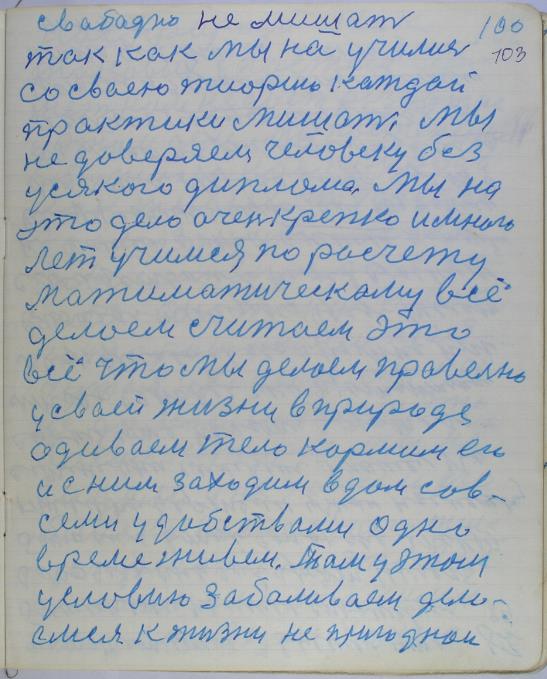 свабадно не мишат 100
так как мы на училия 103
со сваею тиорию каждай
практики мишат. Мы
не доверяем человеку без
усякого диплома. Мы на
это дело очен крепко и много
лет учимся по расчету
матиматическому всё
делоем считаем это
всё что мы делоем правелно
у сваей жизни в природе
одиваем тело кормим его
и с ним заходим в дом сов-
семи удобствами одно
время живем. Там у этом
условию заболиваем дело-
емся к жизни не пригодной